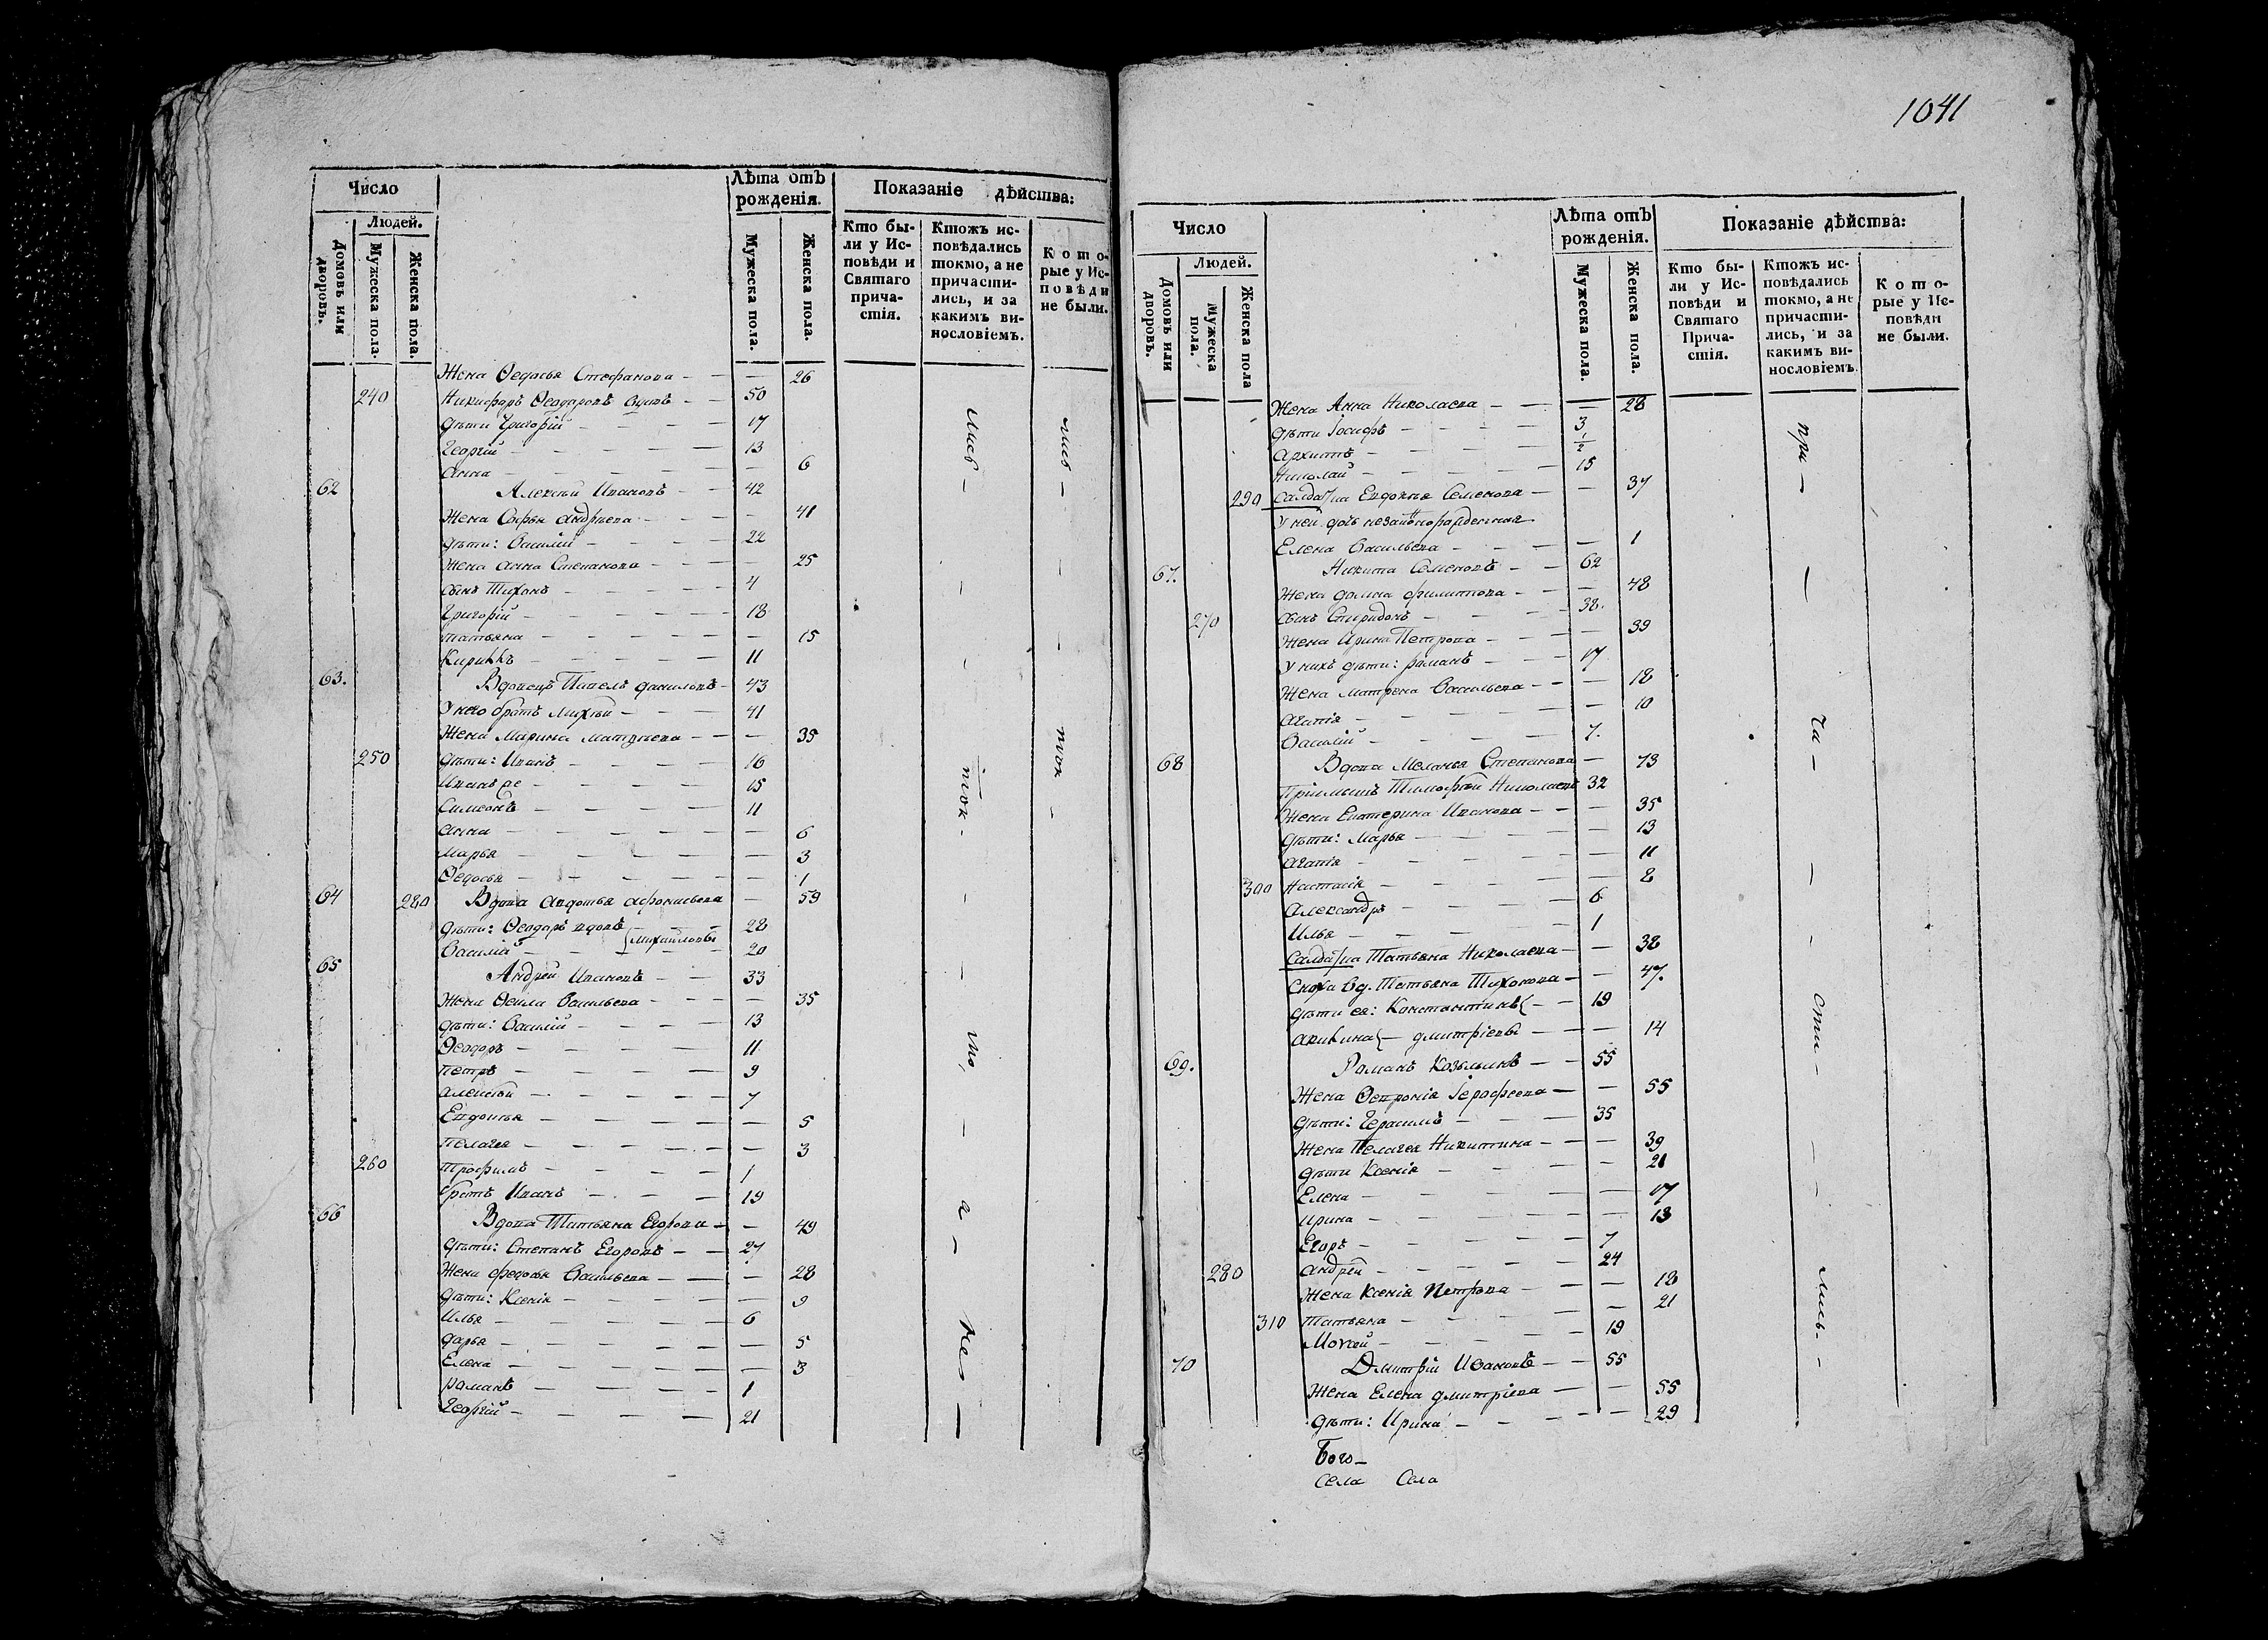 1041
Число
Лѣта отъ рожденія.
Показаніе дѣйства:
Людей.
Домовъ или дворовъ.
Мужеска пола.
Женска пола.
Мужеска пола.
Женска пола.
Кто были у Исповѣди и Святаго причастія.
Ктожъ исповѣдались токмо, а не причастились, и за какимъ винословіемъ.
Которые у Исповѣди не были.
Жена Ѳедосья Стефанова — — 26
240 Никифоръ Ѳеодоровъ — 50
дѣти Григорій — 17
Георгій — 13
Анна — — 6
62 Алексѣй Ивановъ — 42
Жена Софья Андреева — — 41
дѣти: Василій — 22
Жена Анна Степанова — — 25
сынъ Тихонъ — 4
Григорій — 18
Татьяна — — 15
Кириллъ — 11
63. Вдовецъ Павелъ Даниловъ — 43
У него братъ Михей — 41
Жена Марина Матвѣева — — 35
250 дѣти: Иванъ — 16
Иванъ же — 15
Симеонъ — 11
Анна — — 6
Марья — — 3
Ѳедосья — — 1
64 280 Вдова Авдотья Афонасьева — 59
дѣти: Ѳеодоръ вдовъ — 28
Василій — Михайловы 20
65 Андрей Ивановъ — 33
Жена Ѳекла Васильева — — 35
дѣти: Василій — 13
Ѳеодоръ — 11
Петръ — 9
Алексѣй — 7
Евдокія — — 5
Пелагея — — 3
260 Трофимъ — 1
братъ Иванъ — 19
66 Вдова Татьяна Егорова — — 49
дѣти: Степанъ Егоровъ — 27
Жена Федосья Васильева — — 28
дѣти: Ксенія — — 9
Илья — 6
Дарья — — 5
Елена — — 3
Романъ — 1
Георгій — 21
Число
Лѣта отъ рожденія.
Показаніе дѣйства:
Людей.
Домовъ или дворовъ.
Мужеска пола.
Женска пола
Мужеска пола.
Женска пола.
Кто были у Исповѣди и Святаго Причастія.
Ктожъ исповѣдались токмо, а не причастились, и за какимъ винословіемъ.
Которые у Исповѣди не были.
Жена Анна Николаева — — 28
дѣти Іосифъ — 3
Архипъ — 1/2
Николай — 15
290 Салда/ка Евдокія Семенова — — 37
У ней дочь незаконорожденная
Елена Васильева — — 1
67. Никита Семеновъ — 62
Жена Домна Филиппова — — 48
270 сынъ Спиридонъ — 38.
Жена Ирина Петрова — — 39
У нихъ дѣти: Романъ — 17
Жена Матрена Васильева — — 18
Агапія — — 10
Василій — 7.
68 Вдова Меланья Степанова — 73
Пріимышъ Тимофей Николаевъ 32
Жена Екатерина Иванова — — 35
дѣти: Марья — — 13
Агапія — — 11
300 Настасія — — 8
Александръ — 6
Илья — 1
Салда/ка Татьяна Николаева — — 38
Сноха вд. Татьяна Тихонова — — 47.
дѣти ея: Константинъ — 19
Акилина — Дмитріевы — — 14
69. Романъ Козьминъ — 55
Жена Ѳевронія Іерофеева — — 55
дѣти: Герасимъ — 35
Жена Пелагея Никитина — — 39
дѣти Ксенія — — 21
Елена — — 17
Ирина — — 13
Егоръ — 7
280 Андрей — 24
Жена Ксенія Петрова — — 18
310 Татьяна — — 21
Мокей — 19
70 Дмитрій Ивановъ — 55
Жена Елена Дмитріева — — 55
дѣти: Ирина — — 29
при — ча — сти — лись —
Бого—
села Села